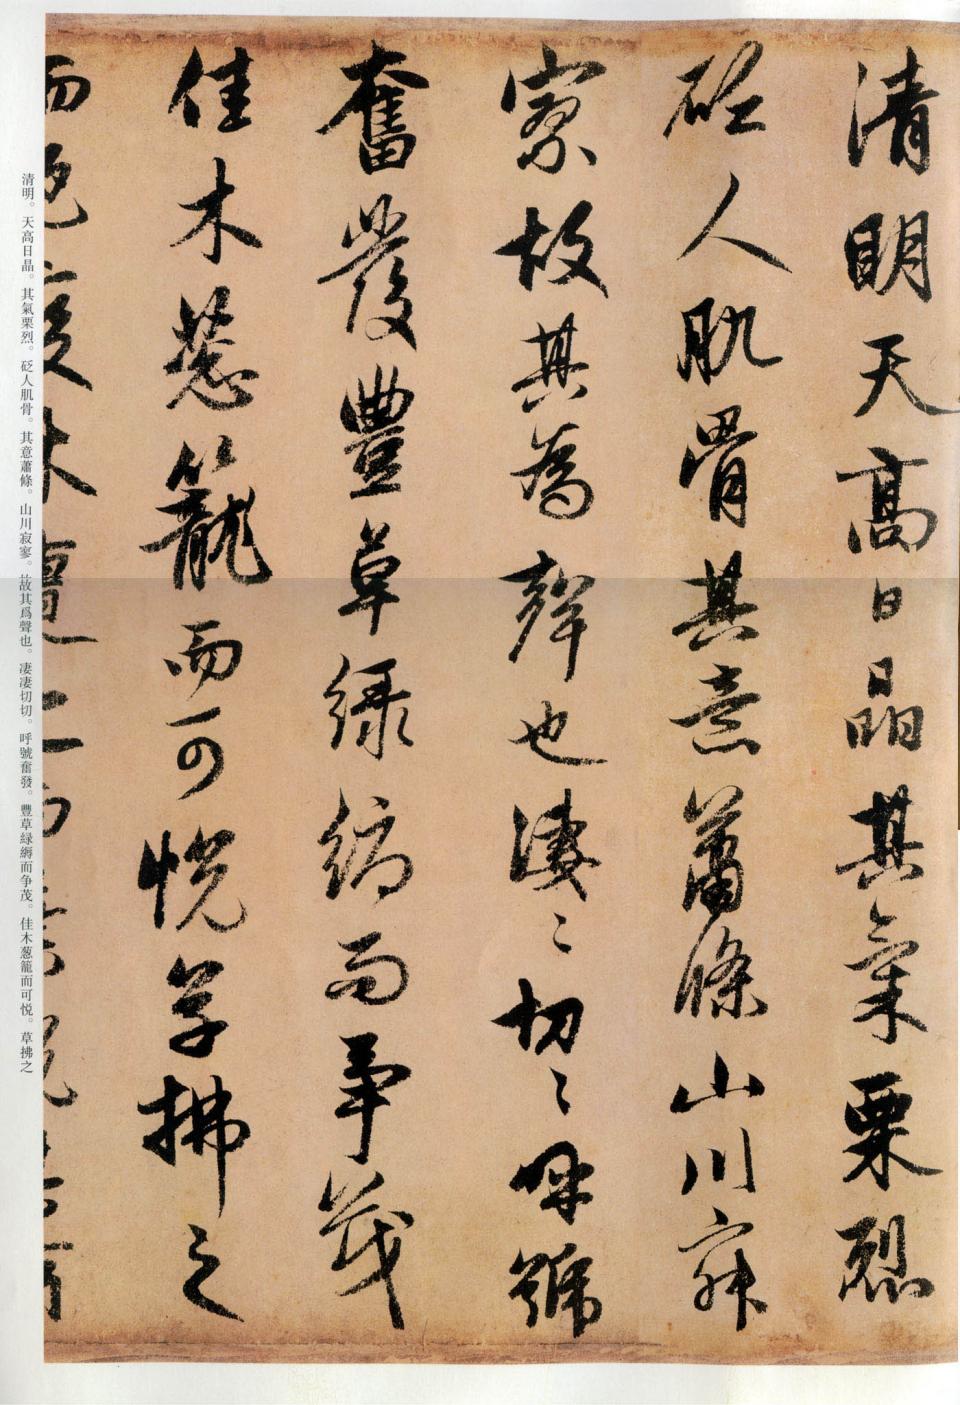 清明天高日晶其氣栗烈
砭人肌骨其意蕭條山川寂
寥故其為聲也淒〻切〻呼號
奮發豐草綠縟而爭茂
佳木葱籠而可悅草拂之
而色變木遭之而葉脫其所
清明。天高日晶。其氣栗烈。砭人肌骨。其意蕭條。山川寂寥。故其爲聲也。淒淒切切。呼號奮發。豐草緑縟而争茂。佳木葱籠而可悦。草拂之